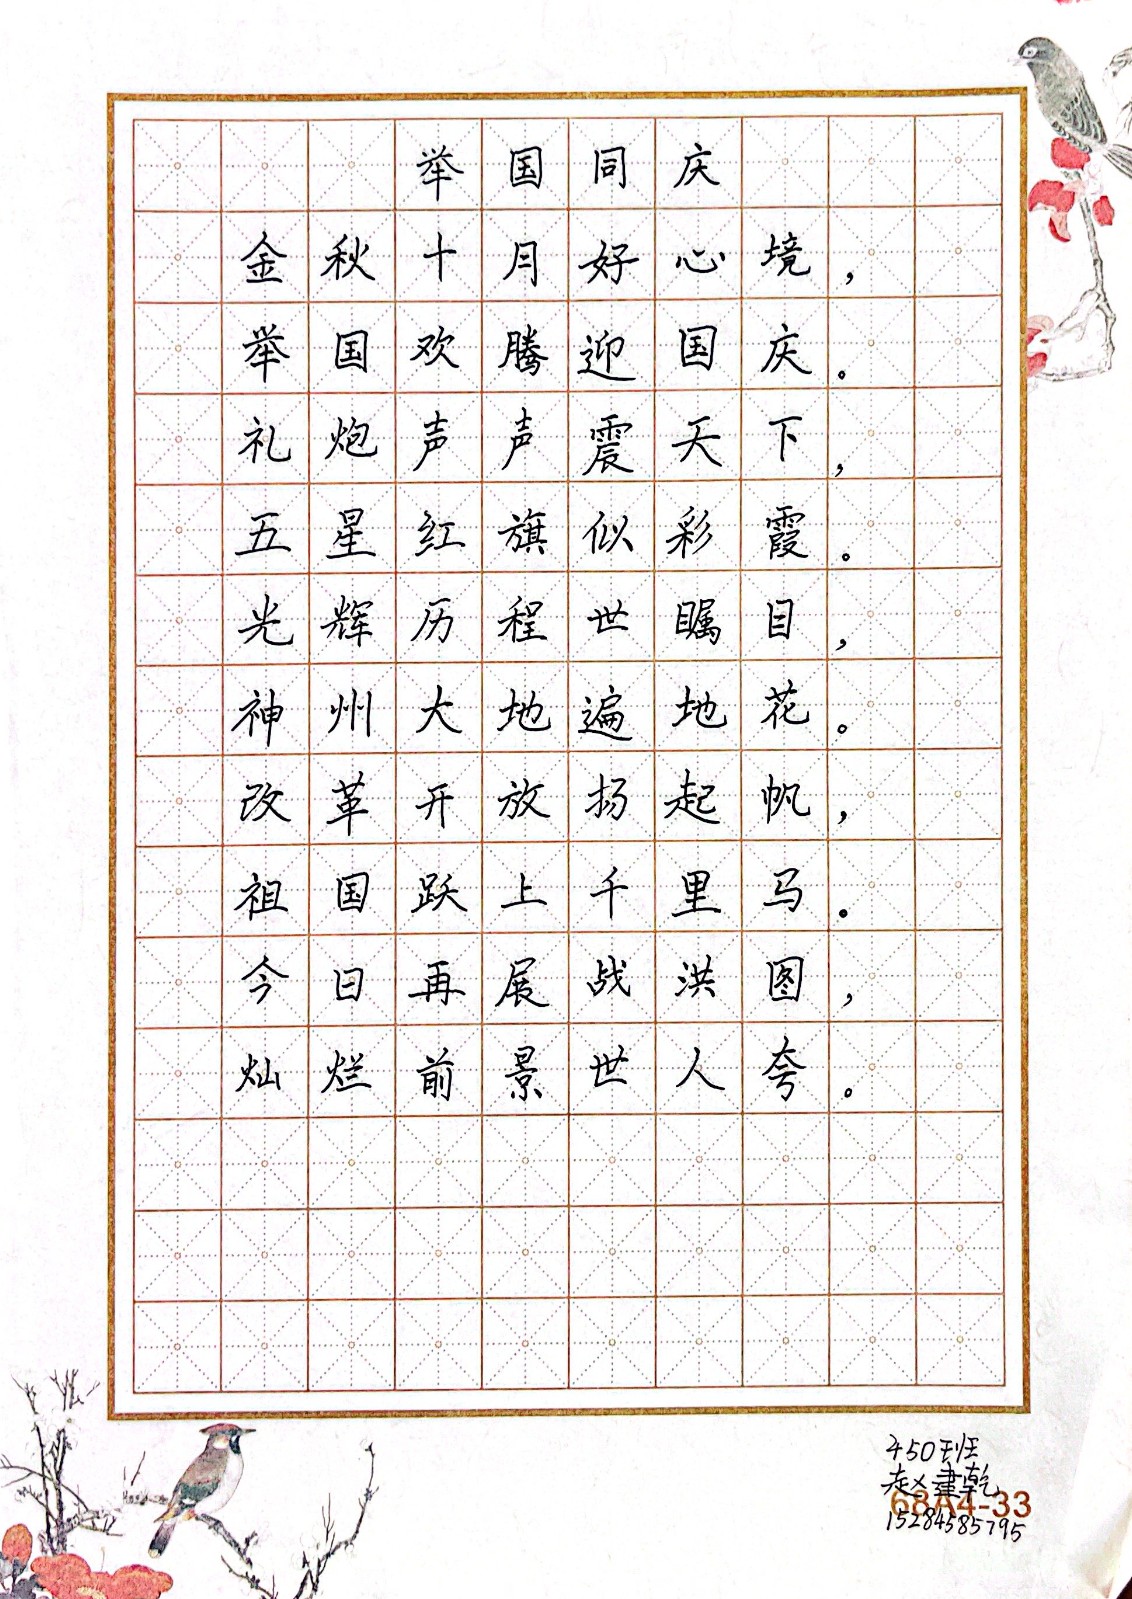 举国同庆
金秋十月好心境，
举国欢腾迎国庆。
礼炮声声震天下，
五星红旗似彩霞。
光辉历程世瞩目，
神州大地遍地花。
改革开放扬起帆，
祖国跃上千里马。
今日再展战洪图，
灿烂前景世人夸。
450班
赵建乾
68A4-33
15284585795